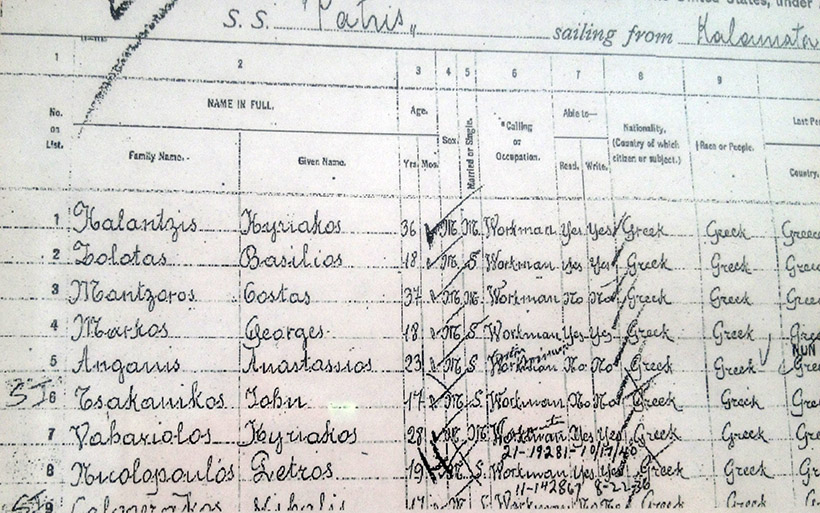 United States, under
S. S. "Patris" sailing from Kalamata
1 2 3 4 5 6 7 8 9
No. on List. NAME IN FULL. Age. Sex. Married or Single. *Calling or Occupation. Able to— Nationality. (Country of which citizen or subject.) †Race or People. Last Per
Family Name. Given Name. Yrs. Mos. Read. Write. Country.
1 Kalantzis Kyriakos 36 M. M. Workman Yes Yes Greek Greek Greece
2 Zolotas Basilios 18 M. S. Workman Yes Yes Greek Greek Gree
3 Mantzoros Costas 37 M. M. Workman No No Greek Greek Gree
4 Markos Georges 18 M. S. Workman Yes Yes Greek Greek Gree
5 Anastassios 23 M. S. Workman No No Greek Greek Gree
6 Tsakanikos John 17 M. S. Workman No No Greek Greek Gree
7 Kyriakos 28 M. M. Workman Yes Yes Greek Greek Gree
8 Nicolopoulos Petros 19 M. S. Workman Yes Yes Greek Greek Gree
9